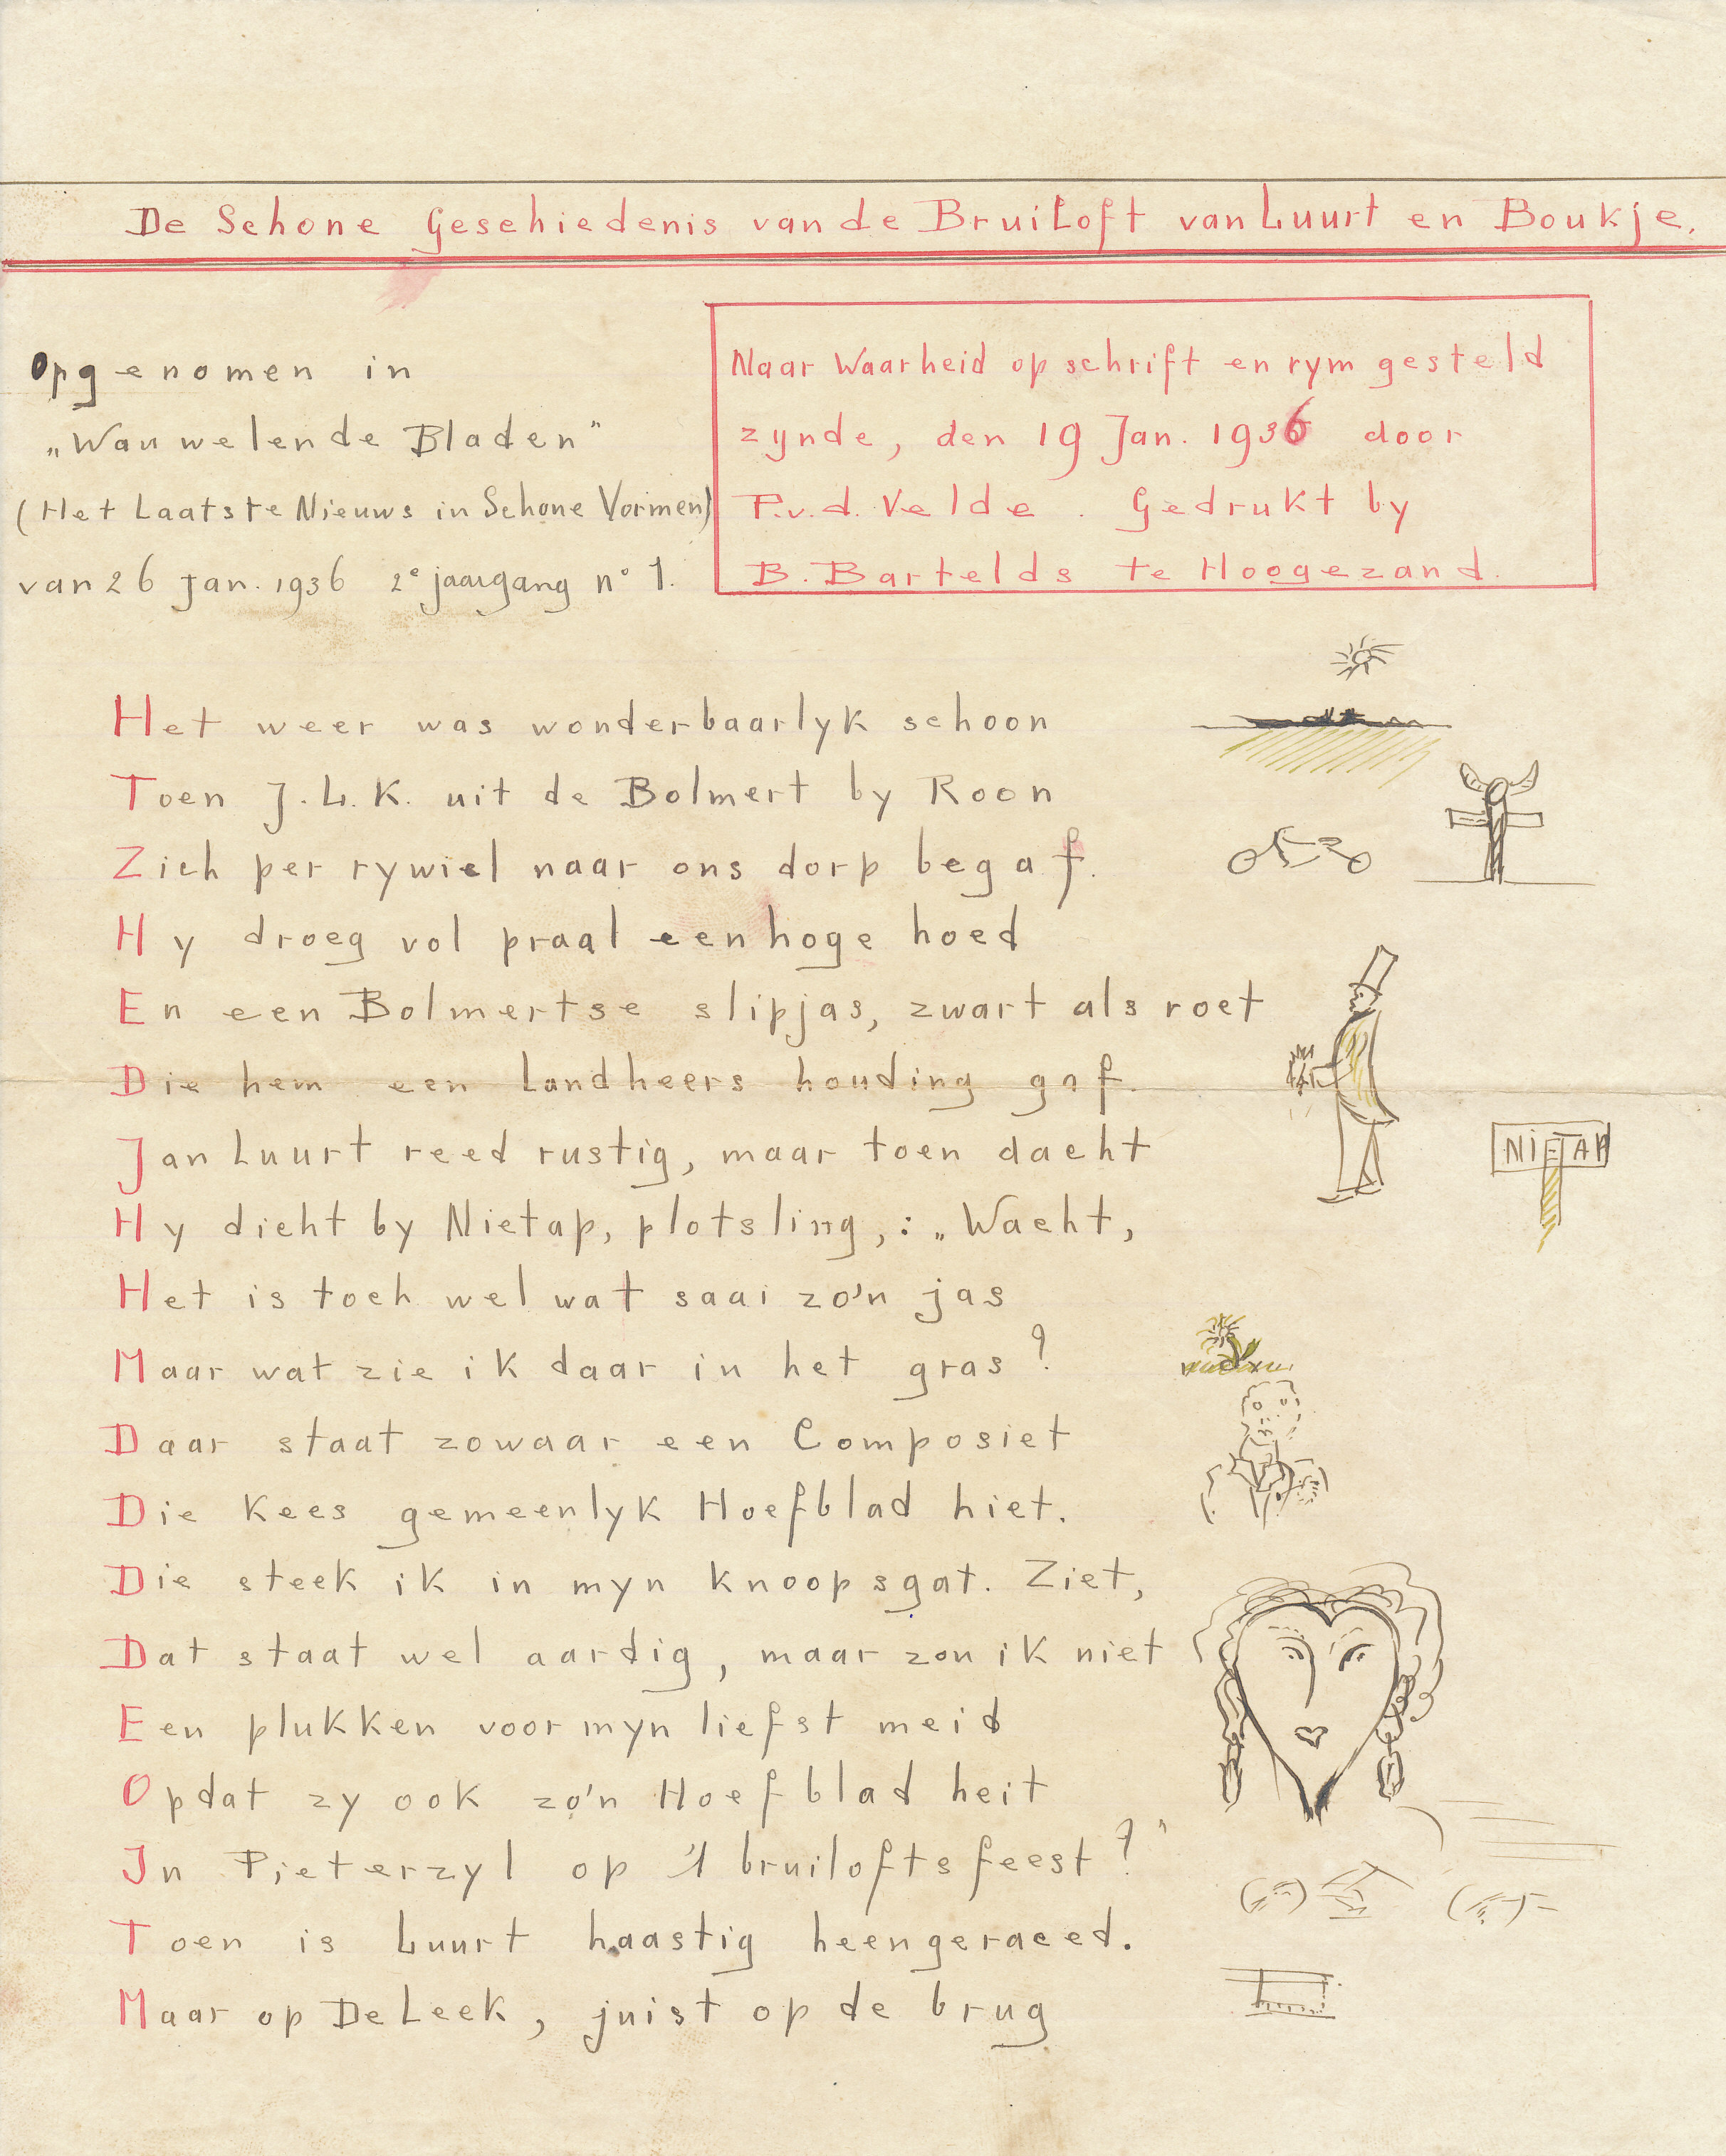 De Schone Geschiedenis van de Bruiloft van Luurt en Boukje.
Opgenomen in
„Wauwelende Bladen"
(Het Laatste Nieuws in Schone Vormen)
van 26 Jan. 1936 2e jaargang no 1.
Naar Waarheid op schrift en rym gesteld
zynde, den 19 Jan. 1936 door
P.v.d. Velde. Gedrukt by
B. Bartelds te Hoogezand.
Het weer was wonderbaarlyk schoon
Toen J.L.K. uit de Bolmert by Roon
Zich per rywiel naar ons dorp begaf.
Hy droeg vol praal een hoge hoed
En een Bolmertse slipjas, zwart als roet
Die hem een Landheers houding gaf.
Jan Luurt reed rustig, maar toen dacht
Hy dicht by Nietap, plotsling,: „Wacht,
NIETAP
Het is toch wel wat saai zo'n jas
Maar wat zie ik daar in het gras?
Daar staat zowaar een Composiet
Die Kees gemeenlyk Hoefblad hiet.
Die steek ik in myn knoopsgat. Ziet,
Dat staat wel aardig, maar zou ik niet
Een plukken voor myn liefst meid
Opdat zy ook zo'n Hoefblad heit
In Pieterzyl op 't bruiloftsfeest?"
Toen is Luurt haastig heengeraced.
Maar op De Leek, juist op de brug